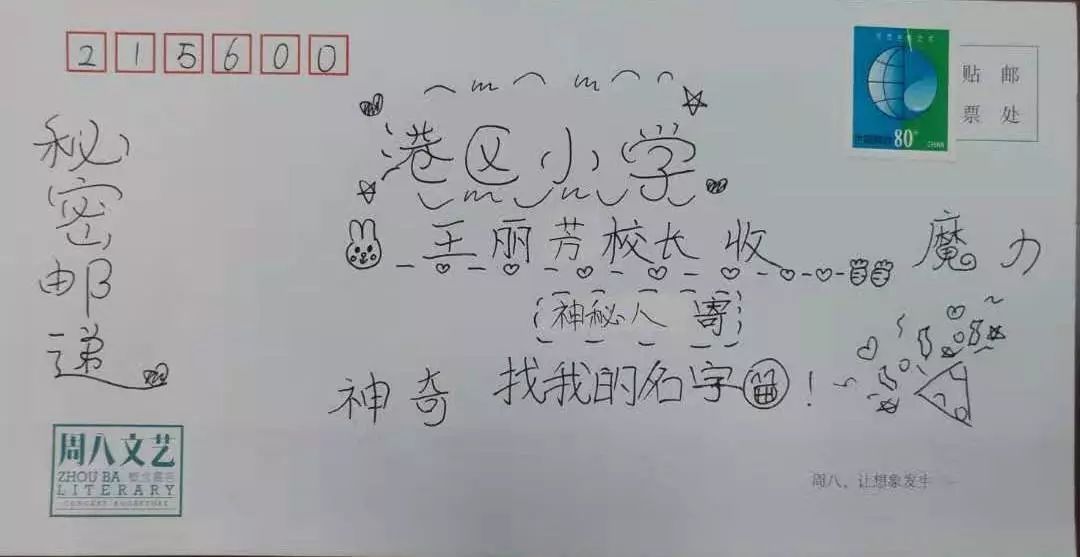 215600
80
CHINA
贴邮
票处
秘密邮递
港区小学
王丽芳校长 收
魔力
神秘人 寄
神奇 找我的名字!
周八文艺
ZHOU BA 概念書店
LITERARY
CONCEPT BOOKSTORE
周八、让想象发生